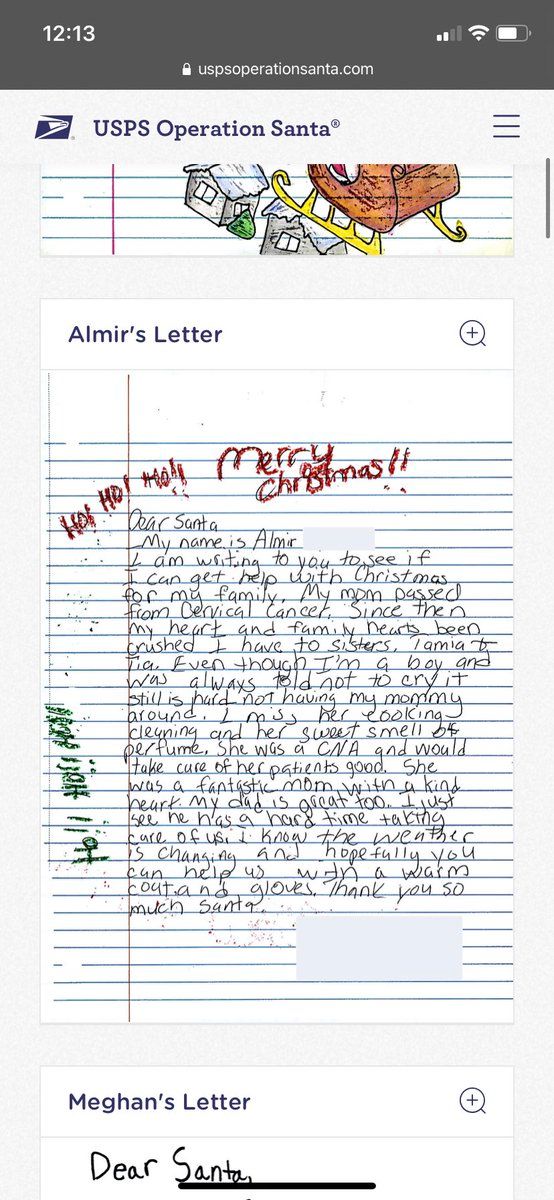 12:13
uspsoperationsanta.com
USPS Operation Santa®
Almir's Letter
Merry
Christmas!!
Ho! Ho! Ho!!
Dear Santa
My name is Almir
I am writing to you to see if
I can get help with Christmas
for my family. My mom passed
from Cervical Cancer. Since then
my heart and family hearts been
crushed I have to sisters, Tamia &
Tia. Even though I'm a boy and
was always told not to cry it
still is hard not having my mommy
around. I miss her cooking
cleaning and her sweet smell of
perfume. She was a CNA and would
take care of her patients good. She
was a fantastic mom with a kind
heart. My dad is great too. I just
see he has a hard time taking
care of us. I know the weather
is changing and hopefully you
can help us with a warm
coat and gloves. Thank you so
much Santa
Meghan's Letter
Dear Santa,